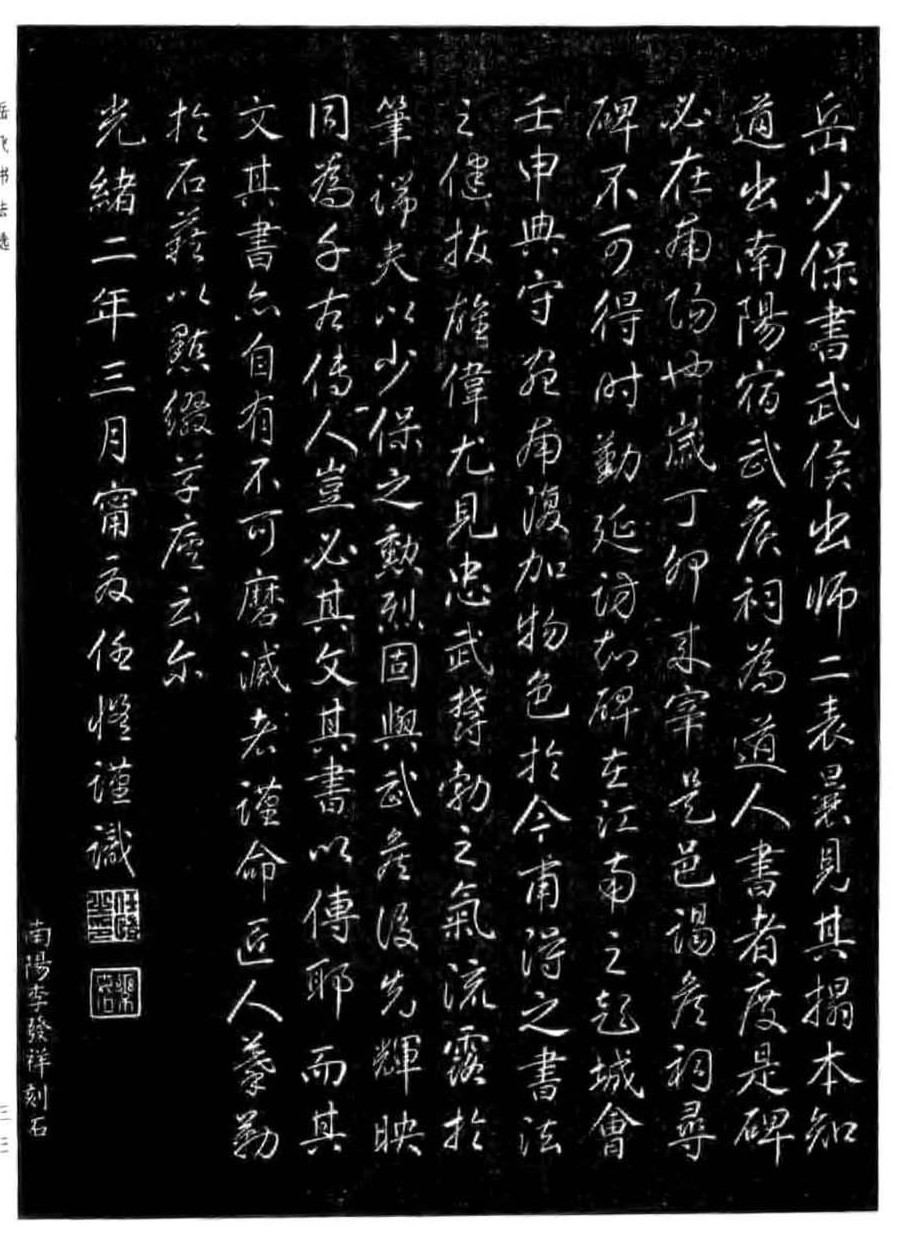 岳少保書武侯出师二表曩見其搨本知
道出南陽宿武矦祠為道人書者度是碑
必在南陽也歲丁卯来宰是邑謁矦祠尋
碑不可得时勤延訪知碑在江南之彭城會
壬申典守宛南復加物色於今甫得之書法
之健拔雄偉尤見忠武鬱勃之氣流露於
筆端夫以少保之勳烈固與武矦後先輝映
同為千古傳人豈必其文其書以傳耶而其
文其書亦自有不可磨滅者謹命匠人摹勒
於石藉以點綴草廬云尔
光緒二年三月甯夏任愷謹識
南陽李發祥刻石
岳飞书法选
三三